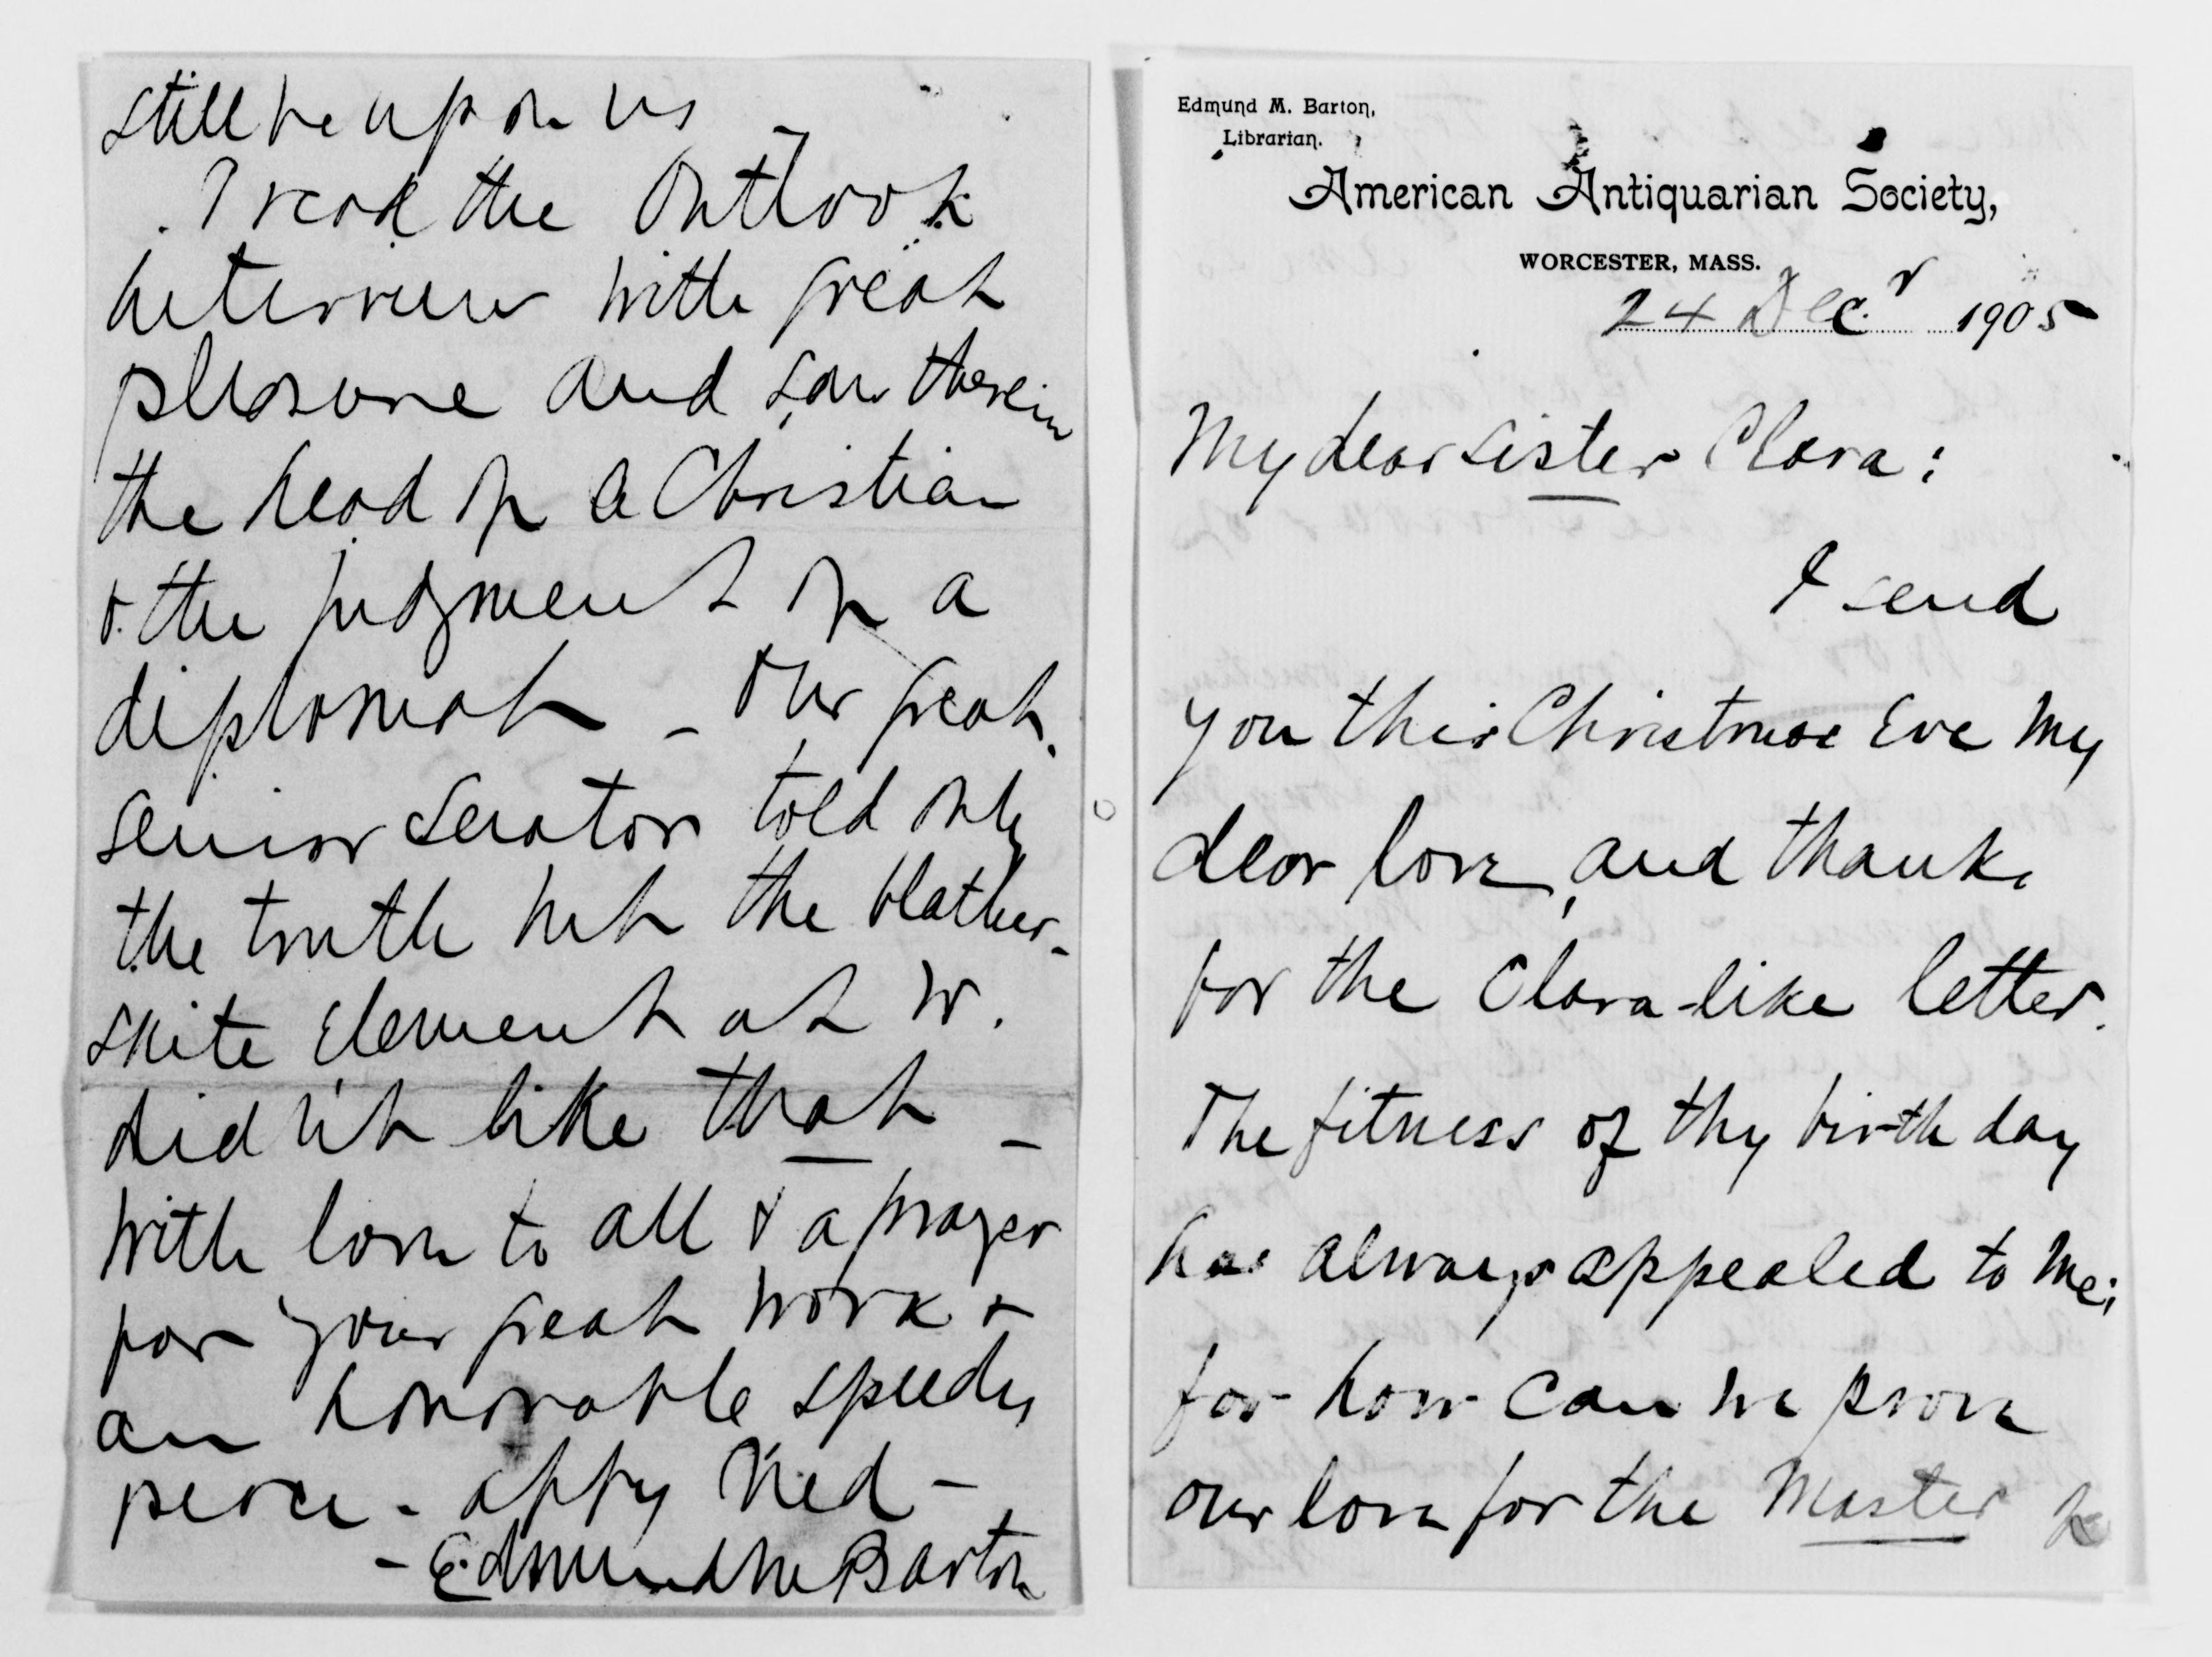 still be upon us -
I read the Outlook
interview with great
pleasure and saw therein
the head of a Christian
& the judgment of a
diplomat - Our great
senior Senator told only
the truth but the blather-
skite element at W.
didn't like that -
With love to all & a prayer
for your great work &
an honorable speedy
peace - affy Ned -
- Edmund M Barton
Edmund M. Barton,
Librarian.
American Antiquarian Society,
WORCESTER, MASS.
24 Decr 1905
My dear sister Clara:
I send
you this Christmas Eve my
dear love, and thanks
for the Clara-like letter.
The fitness of thy birthday
has always appealed to me;
for how can we prove
our love for the Master &